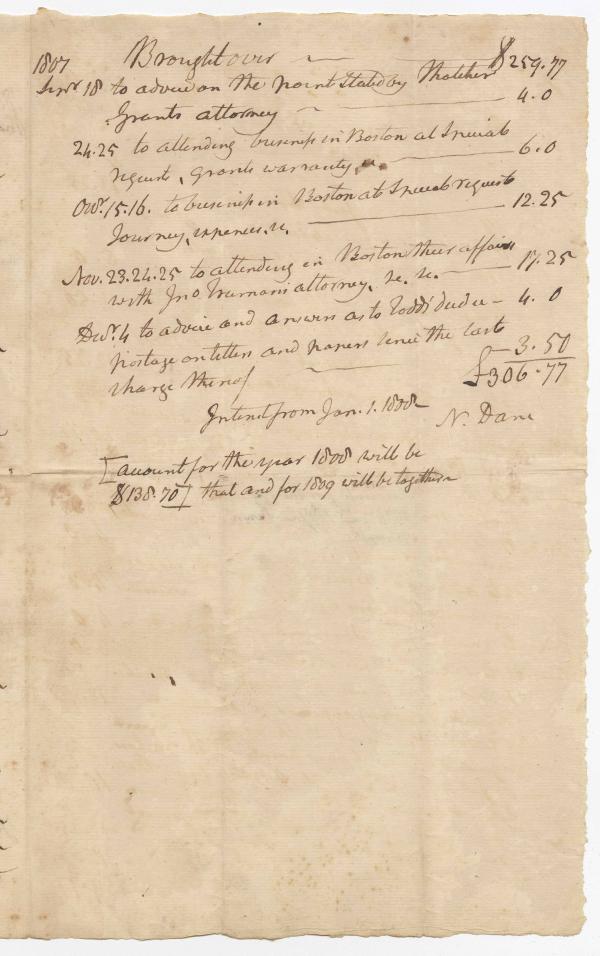 1807 Brought over $259.77
Sepr 18 to advice on the point stated by Thatcher
Grants attorney 4.0
24.25 to attending business in Boston at Special
request, Grants warranty, &c. 6.0
Octr. 15.16. to business in Boston at Special request
Journey, expences, &c. 12.25
Nov. 23.24.25 to attending in Boston their affairs
with Jno attorney, &c. &c. 17.25
Decr. 4 to advice and answers as to Todds deed &c 4.0
postage on letters and papers since the last
charge thereof 3.50
$306.77
Interest from Jan. 1. 1808
N. Dane
[account for the year 1808 will be
$138.70] that and for 1809 will be together